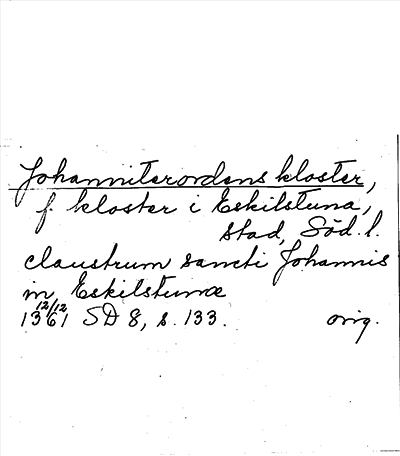 Johanniterordens kloster,
f. kloster i Eskilstuna,
stad, Söd. l.
claustrum sancti Johannis
in Eskilstunæ
12/12
1361 SD 8, s. 133. orig.